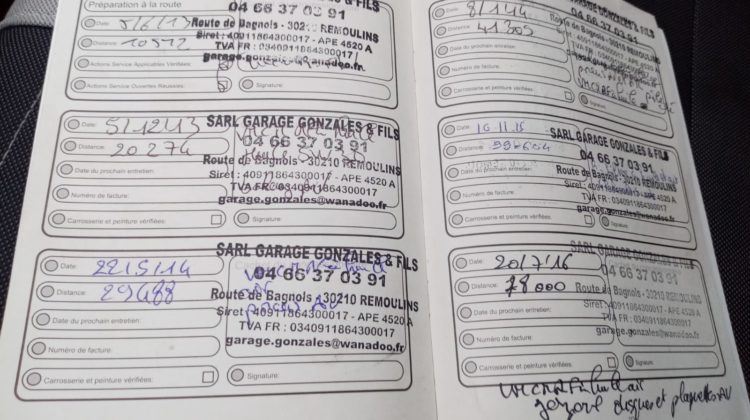 Préparation à la route
Date: 5/6/13
Distance: 10512
Actions Service Applicables Vérifiées:
Actions Service Ouvertes Réussies:
Signature:
& FILS
04 66 37 03 91
Route de Bagnols - 30210 REMOULINS
Siret: 40911864300017 - APE 4520 A
TVA FR : 0340911864300017
garage.gonzales@wanadoo.fr
Date: 5/12/13
Distance: 20274
Date du prochain entretien:
Numéro de facture:
Carrosserie et peinture vérifiées:
Signature:
SARL GARAGE GONZALES & FILS
04 66 37 03 91
Route de Bagnols - 30210 REMOULINS
Siret : 40911864300017 - APE 4520 A
TVA FR : 0340911864300017
garage.gonzales@wanadoo.fr
Date: 22/5/14
Distance: 29488
Date du prochain entretien:
Numéro de facture:
Carrosserie et peinture vérifiées:
Signature:
SARL GARAGE GONZALES & FILS
04 66 37 03 91
Route de Bagnols - 30210 REMOULINS
Siret : 40911864300017 - APE 4520 A
TVA FR : 0340911864300017
garage.gonzales@wanadoo.fr
Date:
Distance: 41309
Date du prochain entretien:
Numéro de facture:
Carrosserie et peinture vérifiées:
Signature:
SARL GARAGE GONZALES & FILS
04 66 37 03 91
Route de Bagnols - 30210 REMOULINS
Siret : 40911864300017 - APE 4520 A
TVA FR : 0340911864300017
garage.gonzales@wanadoo.fr
Date: 16.11.15
Distance:
Date du prochain entretien:
Numéro de facture:
Carrosserie et peinture vérifiées:
Signature:
SARL GARAGE GONZALES & FILS
04 66 37 03 91
Route de Bagnols - 30210 REMOULINS
Siret : 40911864300017 - APE 4520 A
TVA FR : 0340911864300017
garage.gonzales@wanadoo.fr
Date: 20/7/16
Distance: 78000
Date du prochain entretien:
Numéro de facture:
Carrosserie et peinture vérifiées:
Signature:
SARL GARAGE GONZALES & FILS
04 66 37 03 91
Route de Bagnols - 30210 REMOULINS
Siret : 40911864300017 - APE 4520 A
TVA FR : 0340911864300017
garage.gonzales@wanadoo.fr
air
disques et plaquettes AV